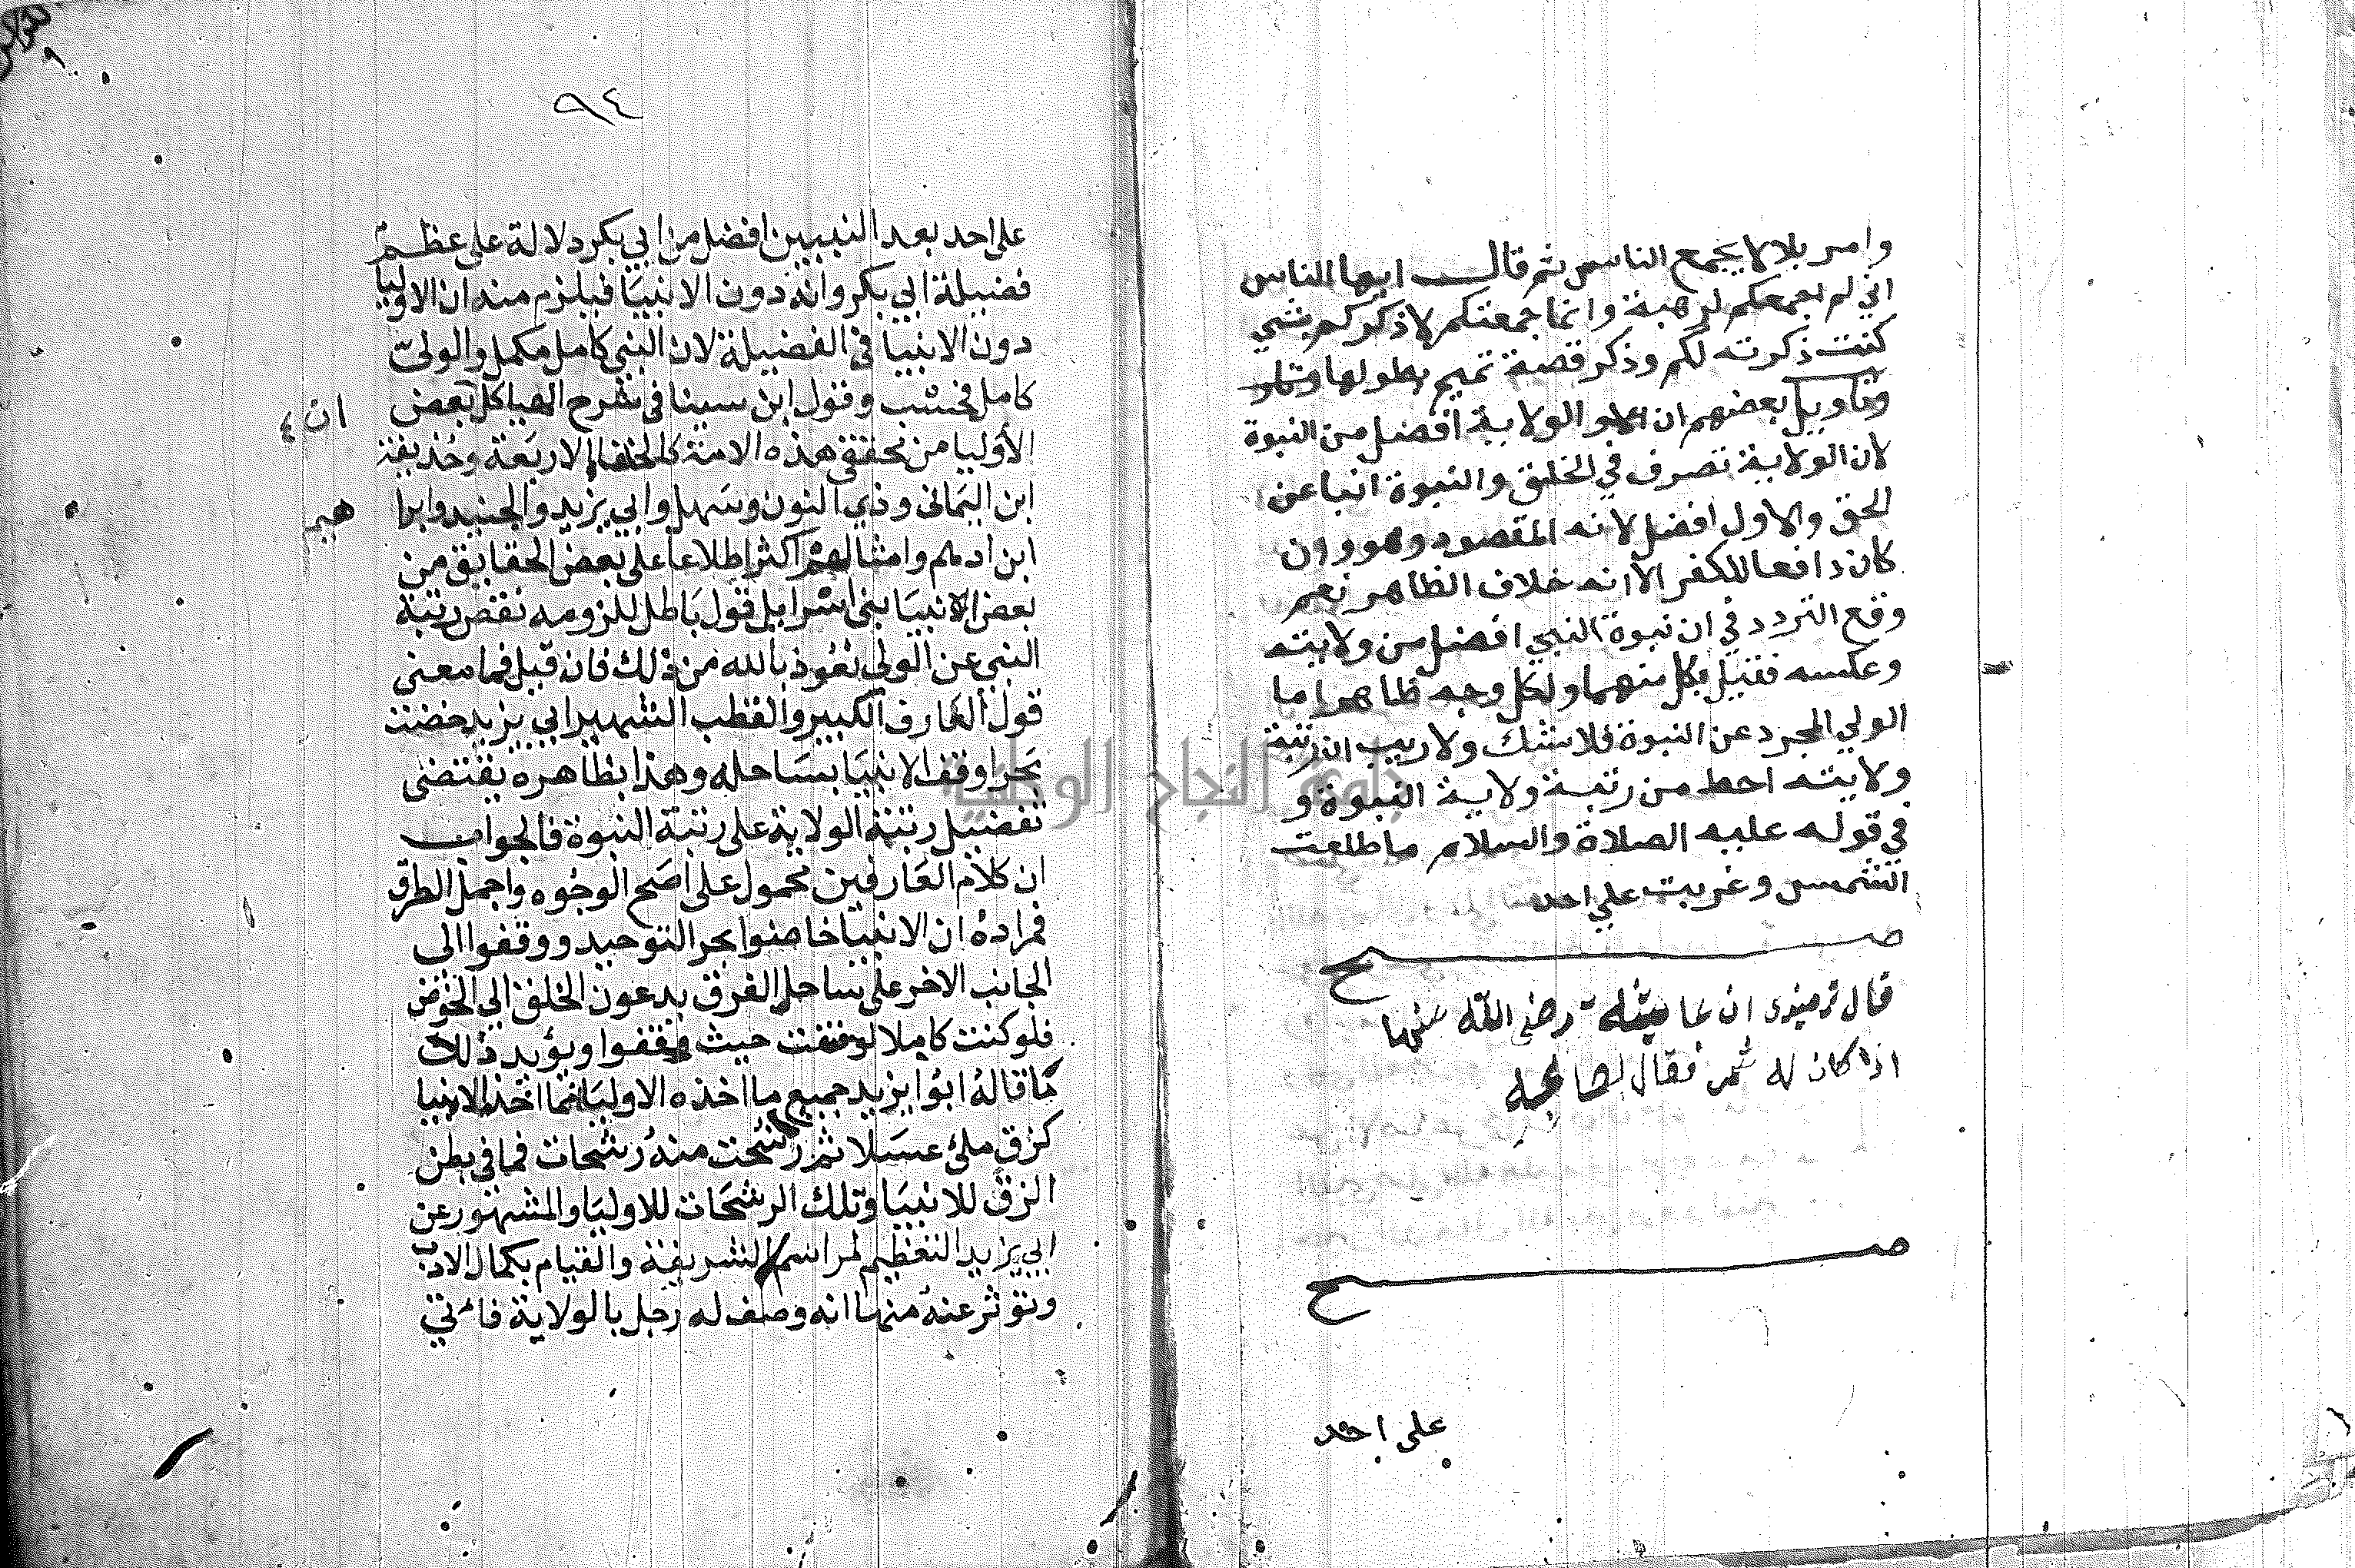 وامر بلالا يجمع الناس ثم قال ايها الناس
اني لم اجمعكم لرهبة وانما جمعتكم لاذكركم بشي
كنت ذكرته لكم وذكر قصة تميم بطولها
وتاويل بعضهم ان الولاية افضل من النبوة
لان الولاية تصرف في الخلق والنبوة انبا عن
الحق والاول افضل لانه المقصود وهو وان
كان دافعا للكفر الا انه خلاف الظاهر نعم
وقع التردد في ان نبوة النبي افضل من ولايته
وعكسه فقيل بكل منهما ولكل وجه ظاهر اما
الولي المجرد عن النبوة فلا شك ولا ريب ان رتبة
ولايته احط من رتبة ولاية النبوة و
في قوله عليه الصلاة والسلام ما طلعت
الشمس وغربت علي احد
صح
قال ترمذي ان عايشة رضي الله عنها
اذا كان له ثمر فقال لصاحبه
صح
على احد
٩٤
على احد بعد النبيين افضل من ابي بكر دلالة على عظم
فضيلة ابي بكر وانه دون الانبيا فيلزم منه ان الاوليا
دون الانبيا في الفضيلة لان النبي كامل مكمل والولي
كامل فحسب وقول ابن سينا في شرح الهياكل بعض ان
الأوليا من محققي هذه الامة كالخلفا الاربعة وحذيفة
ابن اليماني وذي النون وسهل وابي يزيد والجنيد وابراهيم
ابن ادهم وامثالهم اكثر اطلاعا على بعض الحقايق من
بعض الانبيا بني اسرايل قول باطل للزومه نقص رتبة
النبي عن الولي نعوذ بالله من ذلك فان قيل فما معنى
قول العارف الكبير والقطب الشهير ابي يزيد خضت
بحرا وقف الانبيا بساحله وهذا بظاهره يقتضى
تفضيل رتبة الولاية على رتبة النبوة فالجواب
ان كلام العارفين محمول على اصح الوجوه واجمل الطرق
فمراده ان الانبيا خاضوا بحر التوحيد ووقفوا الى
الجانب الاخر على ساحل الفرق يدعون الخلق الي الخوض
فلو كنت كاملا لوقفت حيث وقفوا ويؤيد ذلك
ما قاله ابو يزيد جميع ما اخذه الاوليا مما اخذ الانبيا
كزق ملئ عسلا ثم رشحت منه رشحات فما في بطن
الزق للانبيا وتلك الرشحات للاوليا والمشهور عن
ابي يزيد التعظيم لمراسم الشريعة والقيام بكمال الادب
وتؤثر عنه منها انه وصف له رجل بالولاية فاتي
جامعة النجاح الوطنية